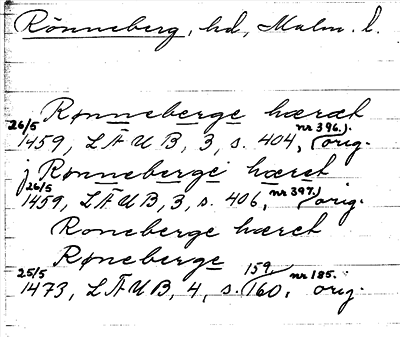 Rönneberg, hd, Malm. l.
Rønneberge hæræt
26/5 nr 396).
1459, LÄUB, 3, s. 404, orig.
j Rønneberge hæræt
26/5 nr 397)
1459, LÄUB, 3, s. 406, orig.
Roneberge hæret
Røneberge
25/5 159, nr 185.
1473, LÄUB, 4, s. 160, orig.